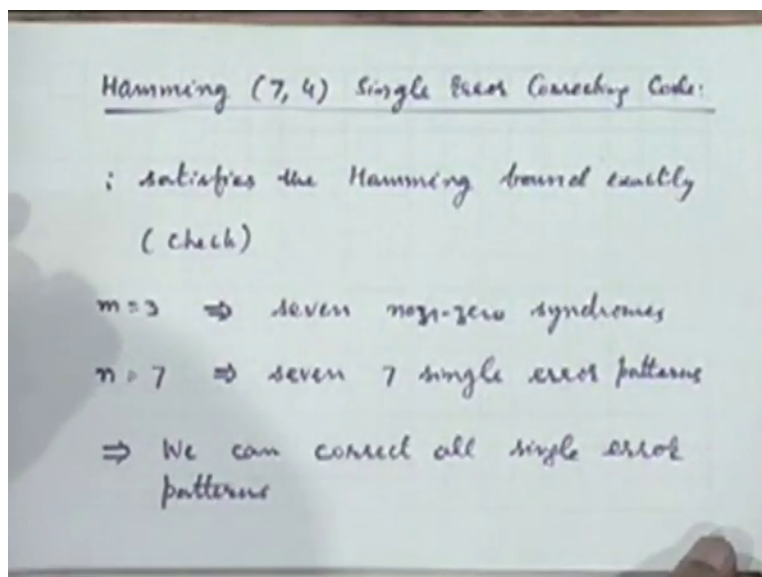 Hamming (7, 4) Single Error Correcting Code:
; satisfies the Hamming bound exactly
(check)
m = 3 ⇒ seven non-zero syndromes
n = 7 ⇒ seven 7 single error patterns
⇒ We can correct all single error
patterns